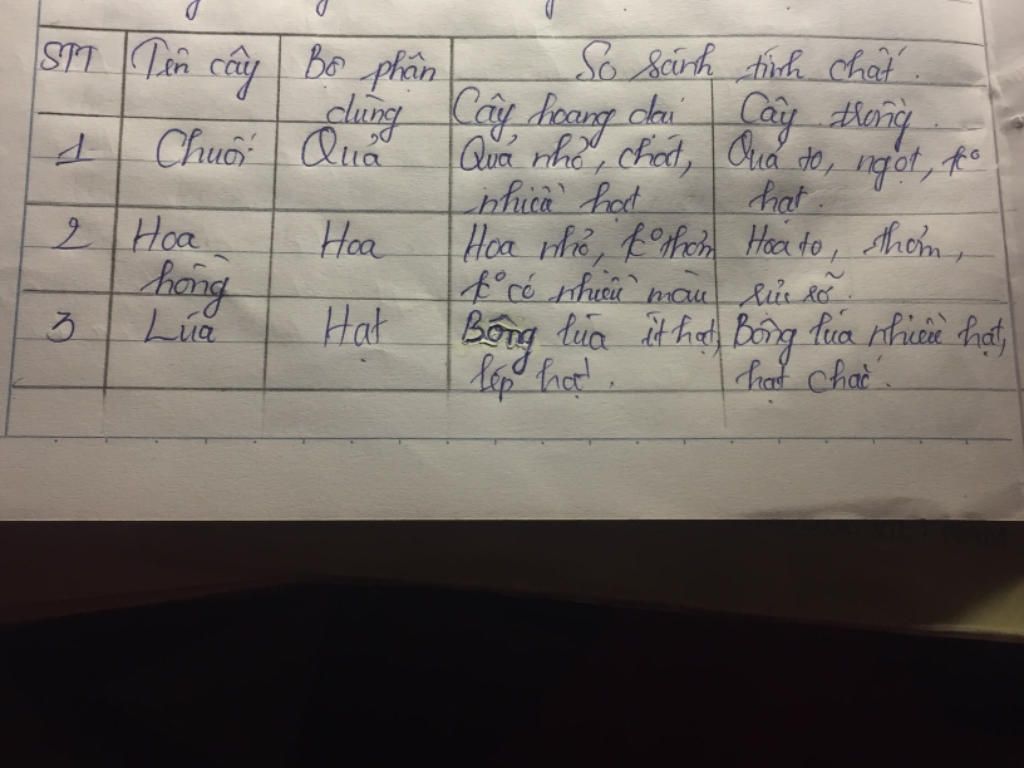 STT Tên cây Bộ phận So sánh tính chất.
dùng Cây hoang dại Cây trồng.
1 Chuối Quả Quả nhỏ, chát, Quả to, ngọt, k°
nhiều hạt hạt.
2 Hoa Hoa Hoa nhỏ, k° thơm Hoa to, thơm,
hồng k° có nhiều màu sặc sỡ.
3 Lúa Hạt Bông lúa ít hạt, Bông lúa nhiều hạt,
lép hạt. hạt chắc.